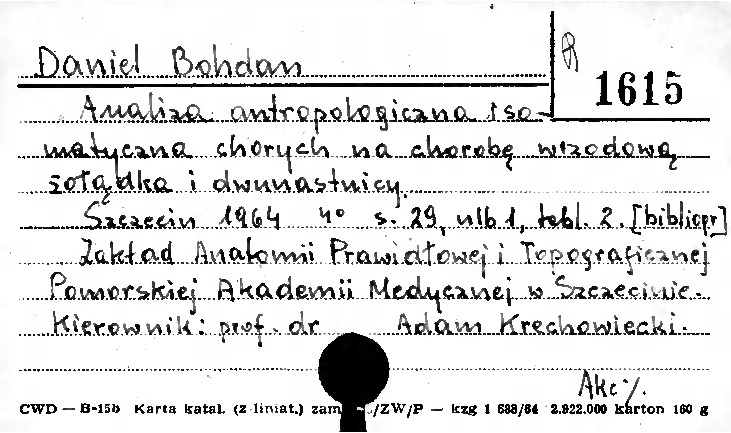 Daniel Bohdan
1615
Analiza antropologiczna i so-
matyczna chorych na chorobę wrzodową
żołądka i dwunastnicy.
Szczecin 1964 4° s. 29, nlb 1, tabl. 2. [bibliogr]
Zakład Anatomii Prawidłowej i Topograficznej
Pomorskiej Akademii Medycznej w Szczecinie.
Kierownik: prof. dr Adam Krechowiecki.
Akc
CWD — B-15b Karta katal. (z liniat.) zam /ZW/P — kzg 1 688/64 2.922.000 karton 160 g